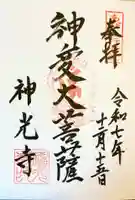 奉拝
令和七年
十一月十五日
神変大菩薩
神光寺